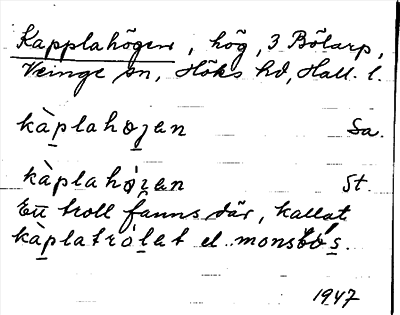 Kapplahögen, hög, 3 Bölarp,
Veinge sn, Höks hd, Hall. l.
kàplahøʒan Sa.
kàplahøʒan St.
Ett troll fanns där, kallat
kàplatrólat el. monsbós.
1947